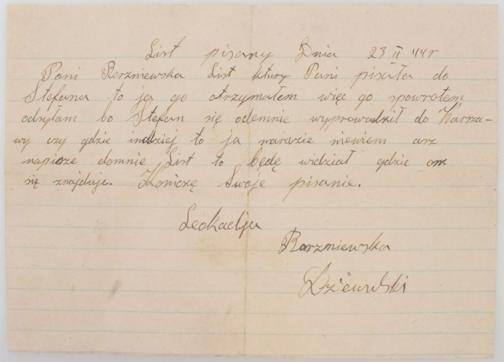 List pisany Dnia 23 II 44r
Pani Barzniewska List ktury Pani pisała do
Stefana to ja go otrzymałem więc go spowrotem
odsyłam bo Stefan się odemnie wyprowadził do Warsza-
wy czy gdzie indziej to ja narazie niewiem aż
napisze domnie List to będę widział gdzie on
się znajduje. Kończę Swoje pisanie.
Leokadija
Barzniewska